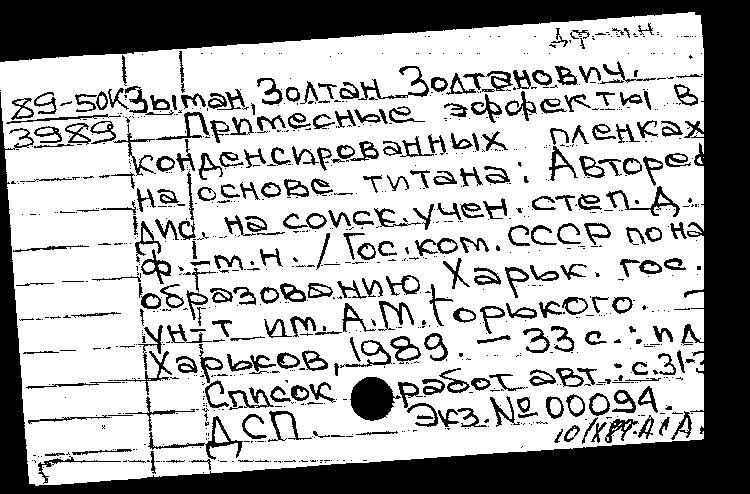 Д.ф.-м.н.
89-50К Зыман, Золтан Золтанович.
3989 Примесные эффекты в
конденсированных пленках
на основе титана: Автореф
дис. на соиск. учен. степ. д.
ф.-м.н. / Гос. ком. СССР по на
образованию, Харьк. гос.
ун-т им. А.М. Горького. —
Харьков, 1989. — 33 с.: ил
Список работ авт.: с.31-3
ДСП. Экз. № 00094.
10/X89.